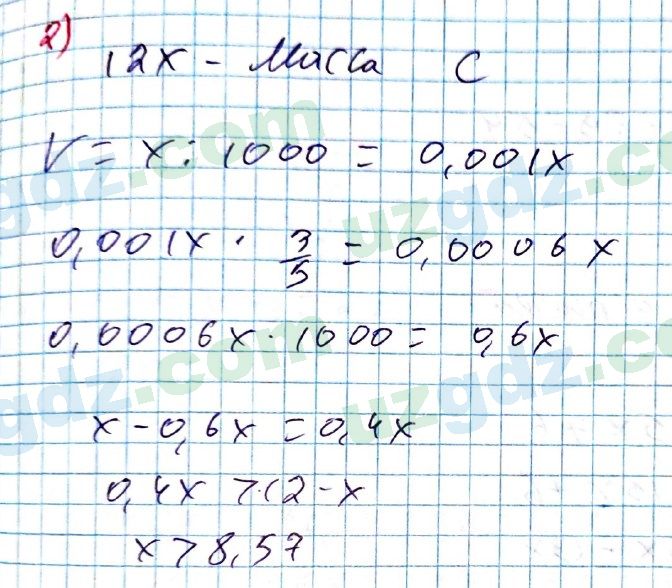 2)
12x - Масса С
V = x : 1000 = 0,001x
0,001x · 3/5 = 0,0006x
0,0006x · 1000 = 0,6x
x - 0,6x = 0,4x
0,4x > 12 - x
x > 8,57
uzgdz.com
uzgdz.com
uzgdz.com
uzgdz.com